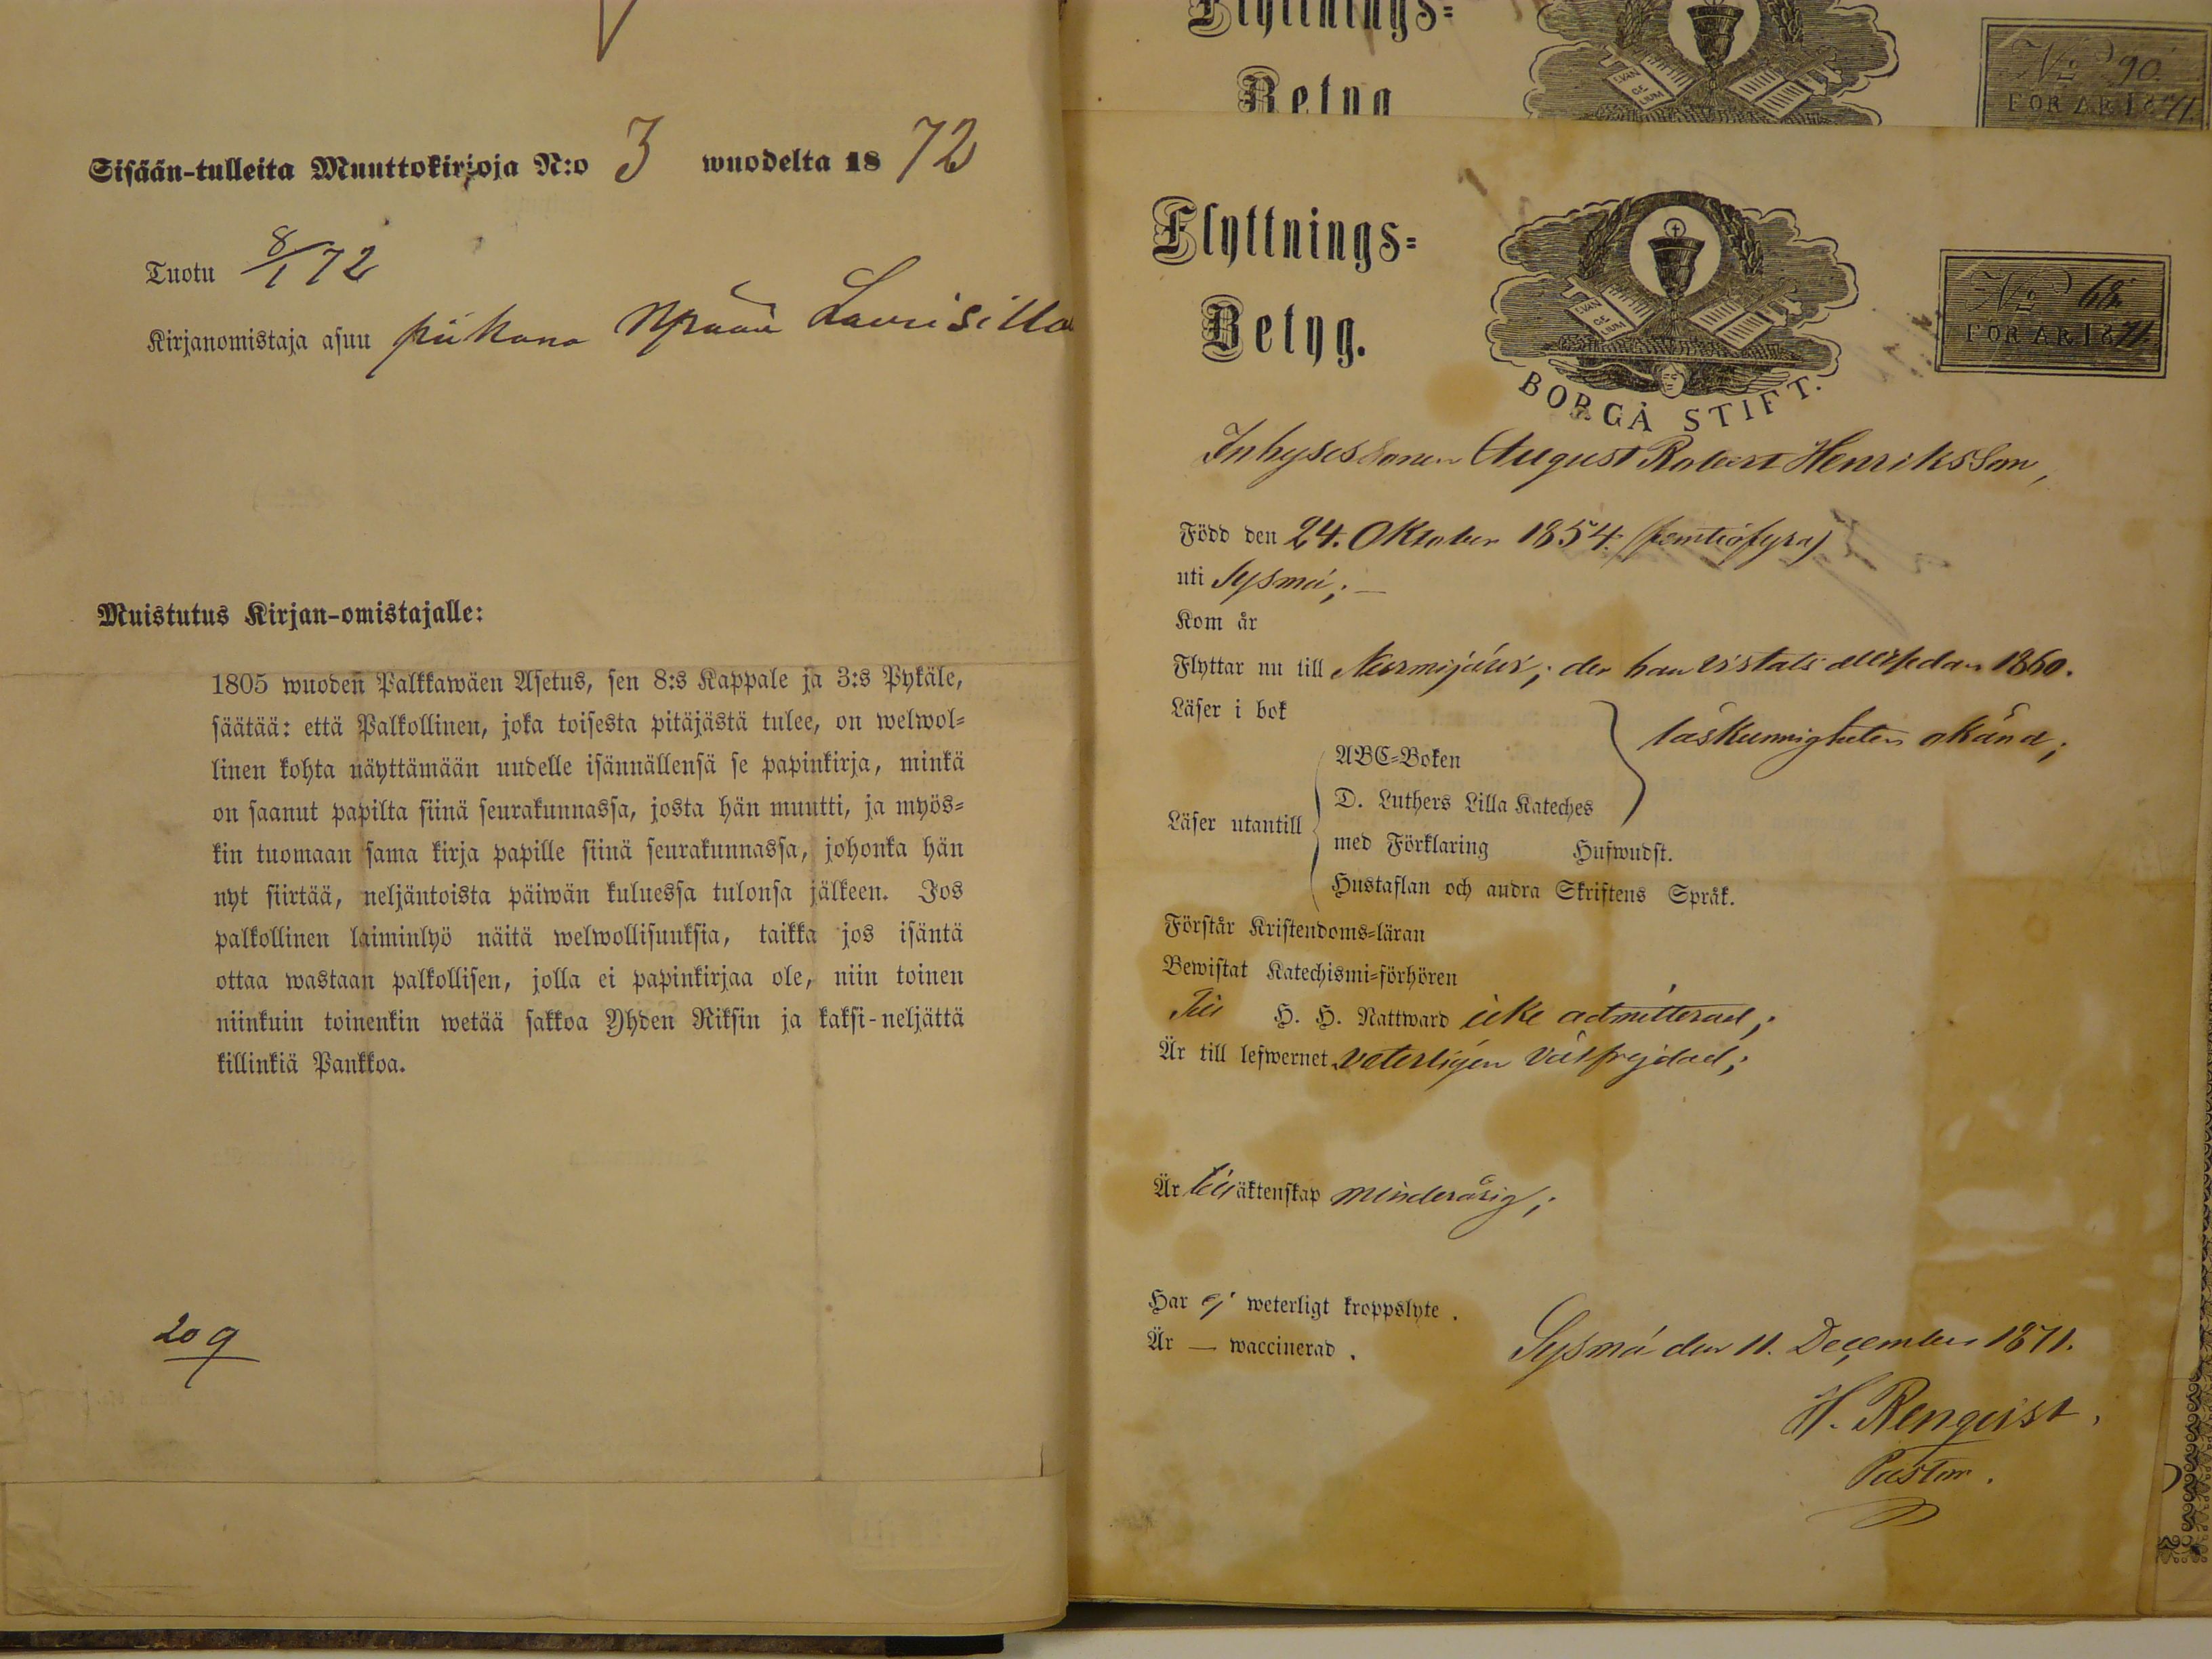 Sisään-tulleita Muuttokirjoja N:o 3 wuodelta 1872
Tuotu 8/1 72
Kirjanomistaja asuu piikana Laurisilla
Muistutus Kirjan-omistajalle:
1805 wuoden Palkkawäen Asetus, sen 8:s Kappale ja 3:s Pykäle,
säätää: että Palkollinen, joka toisesta pitäjästä tulee, on welwol-
linen kohta näyttämään uudelle isännällensä se papinkirja, minkä
on saanut papilta siinä seurakunnassa, josta hän muutti, ja myös-
kin tuomaan sama kirja papille siinä seurakunnassa, johonka hän
nyt siirtää, neljäntoista päiwän kuluessa tulonsa jälkeen. Jos
palkollinen laiminlyö näitä welwollisuuksia, taikka jos isäntä
ottaa wastaan palkollisen, jolla ei papinkirjaa ole, niin toinen
niinkuin toinenkin wetää sakkoa Yhden Riksin ja kaksi-neljättä
killinkiä Pankkoa.
209
Flyttnings-
Betyg
No 90
FÖR ÅR 1871.
Flyttnings-
Betyg.
EVAN
GE
LIUM
BORGÅ STIFT.
No 68.
FÖR ÅR 1871.
Inhyses sonen August Robert Henriksson,
Född den 24. Oktober 1854. (femtiofyra)
uti Sysmä; —
Kom år
Flyttar nu till Nurmijärvi; der han vistats allt sedan 1860.
Läser i bok
läskunnigheten okänd;
Läser utantill
ABC-Boken
D. Luthers Lilla Kateches
med Förklaring Hufwudst.
Hustaflan och andra Skriftens Språk.
Förstår Kristendoms-läran
Bewistat Katechismi-förhören
Till H. H. Nattward icke admitterad;
Är till lefwernet veterligen välfrejdad;
Är till äktenskap minderårig;
Har ej weterligt kroppslyte.
Är — waccinerad.
Sysmä den 11. December 1871.
H. Renqvist.
Pastor.